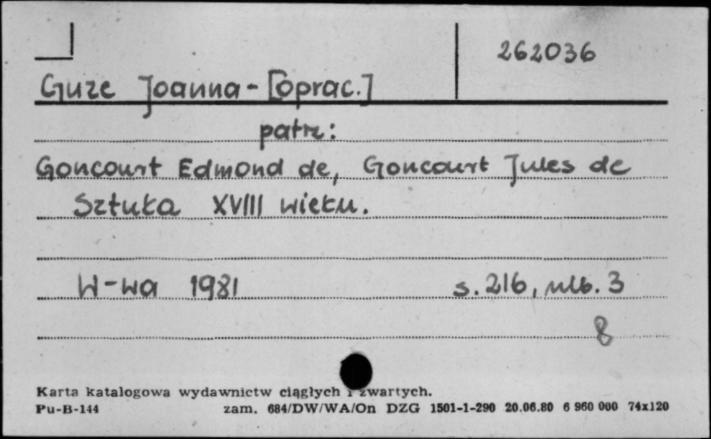 262036
Guze Joanna - [oprac.]
patrz:
Goncourt Edmond de, Goncourt Jules de
Sztuka XVIII wieku.
W-wa 1981 s. 216, nlb. 3
8
Karta katalogowa wydawnictw ciągłych i zwartych.
Pu-B-144 zam. 684/DW/WA/On DZG 1501-1-290 20.06.80 6 960 000 74x120